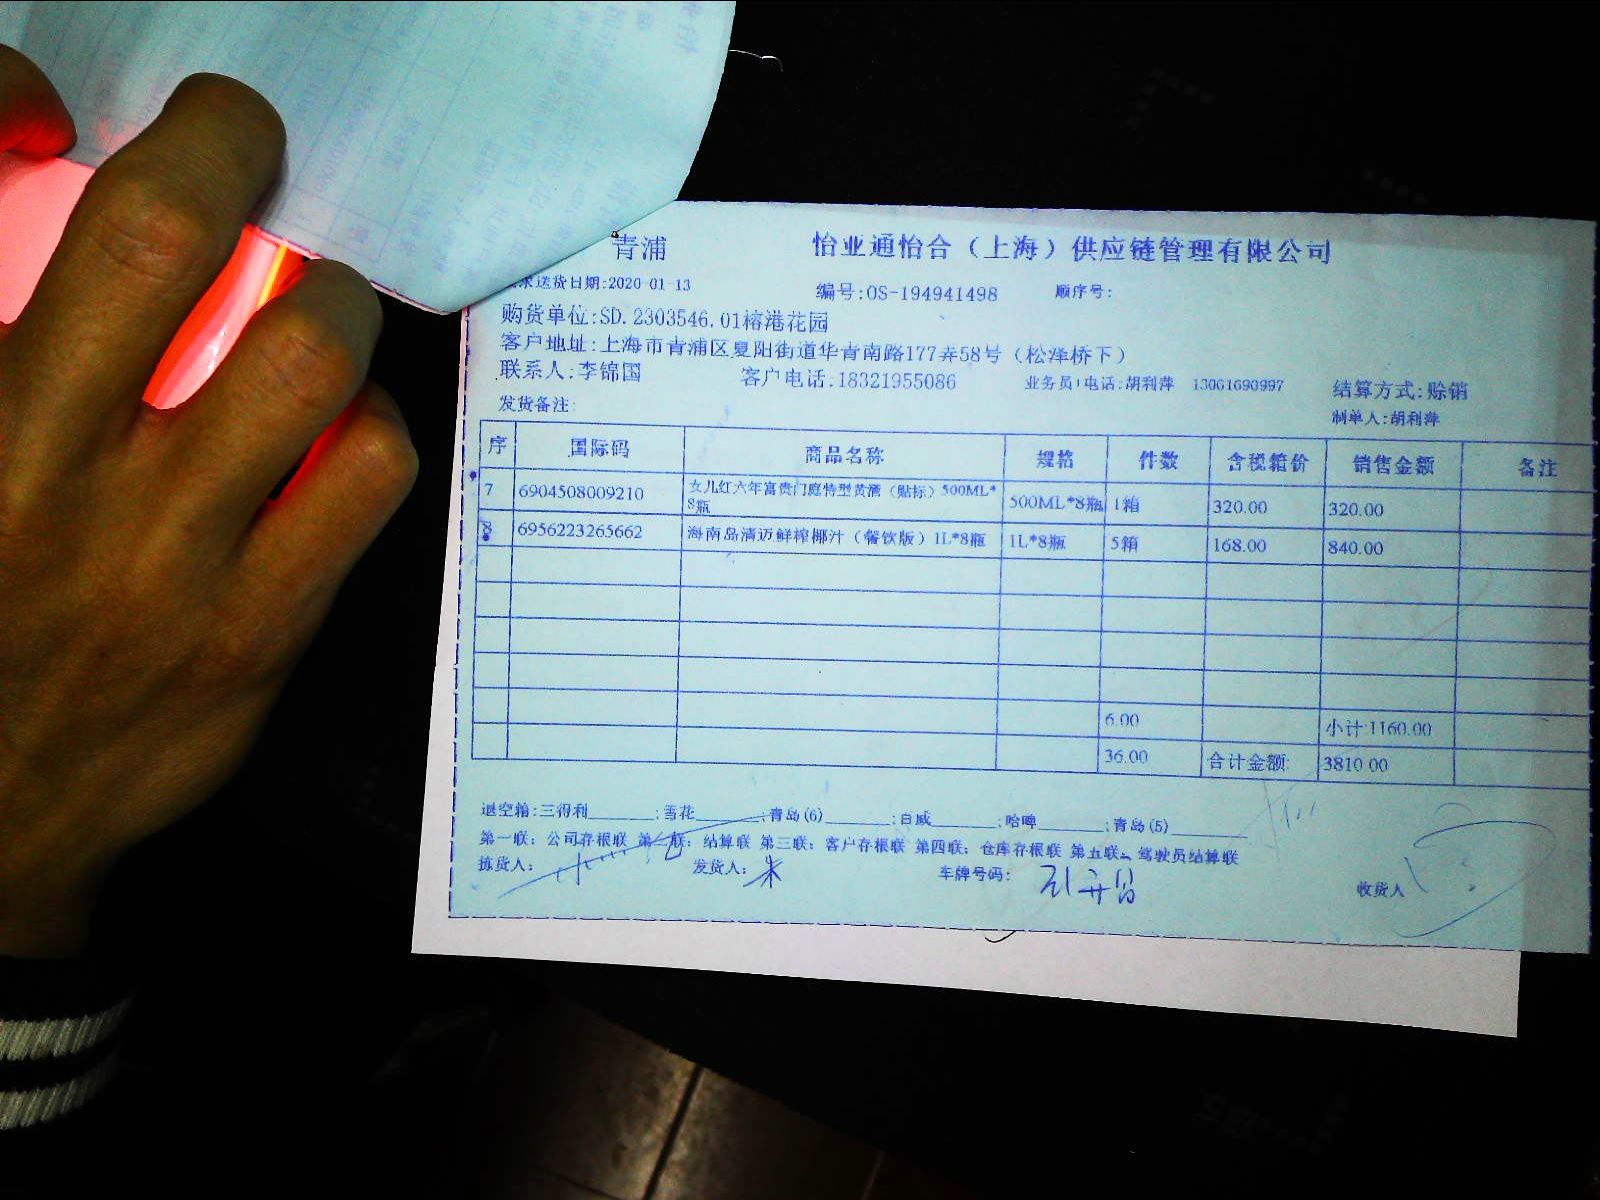 青浦 怡业通怡合（上海）供应链管理有限公司
求送货日期:2020-01-13 编号:OS-194941498 顺序号:
购货单位:SD.2303546.01榕港花园
客户地址:上海市青浦区夏阳街道华青南路177弄58号（松泽桥下）
联系人:李锦国 客户电话:18321955086 业务员/电话:胡利萍 13061690997 结算方式:赊销
发货备注: 制单人:胡利萍
序 国际码 商品名称 规格 件数 含税箱价 销售金额 备注
7 6904508009210 女儿红六年富贵门庭特型黄酒（贴标）500ML*8瓶 500ML*8瓶 1箱 320.00 320.00
8 6956223265662 海南岛清迈鲜榨椰汁（餐饮版）1L*8瓶 1L*8瓶 5箱 168.00 840.00
6.00 小计:1160.00
36.00 合计金额: 3810.00
退空箱:三得利______;雪花______;青岛(6)______;百威______;哈啤______;青岛(5)______
第一联：公司存根联 第二联：结算联 第三联：客户存根联 第四联：仓库存根联 第五联：驾驶员结算联
拣货人: 发货人: 朱 车牌号码: 收货人